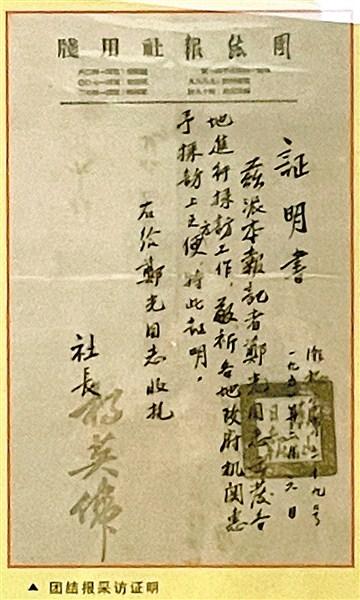 團結報社用牋
証明書
兹派本報記者鄭光同志各
地進行採訪工作，敬祈各地政府机関惠
予採訪上之方便，特此証明。
右给鄭光同志收执
社長 楊英偉
一九五一年二月六日
▲ 团结报采访证明